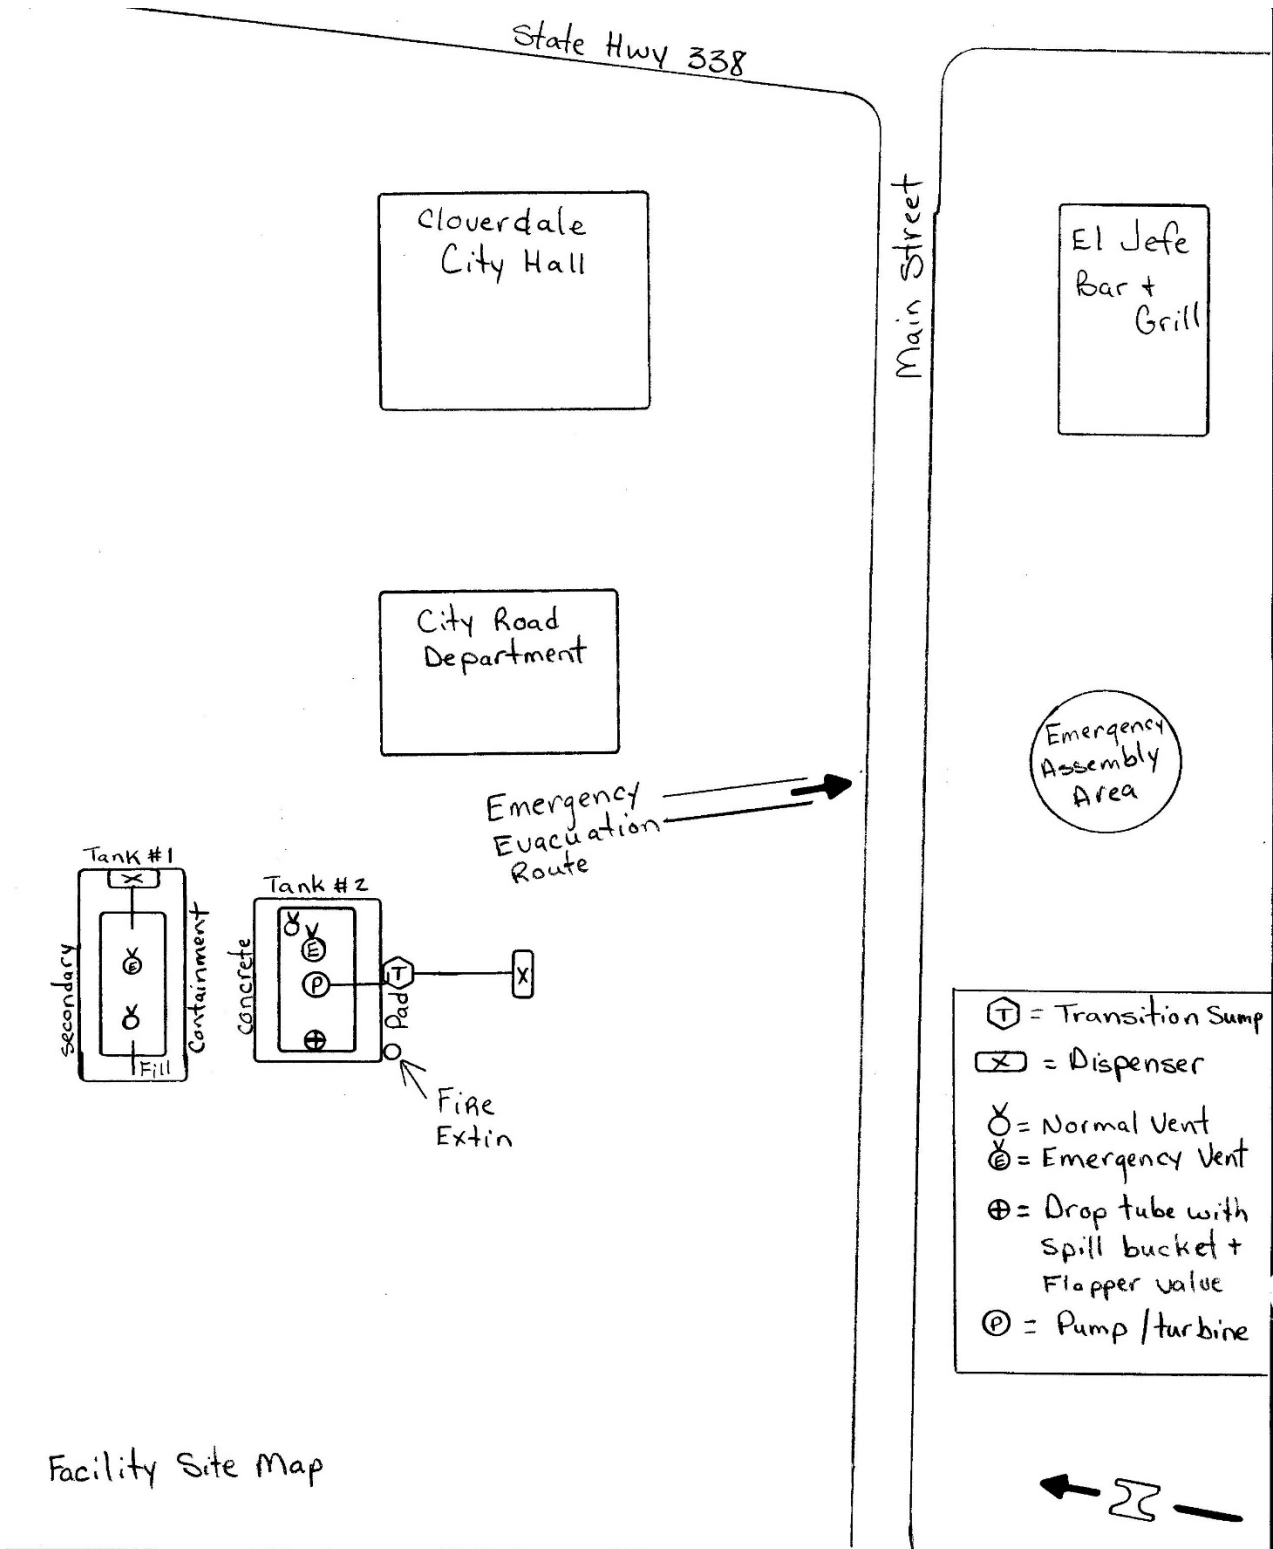 State Hwy 338
Cloverdale
City Hall
Main Street
El Jefe
Bar +
Grill
City Road
Department
Emergency
Assembly
Area
Emergency
Evacuation
Route
Tank #1
X
E
Fill
secondary
containment
Tank #2
E
P
T
X
concrete
Pad
Fire
Extin
T = Transition Sump
X = Dispenser
= Normal Vent
E = Emergency Vent
= Drop tube with
Spill bucket +
Flapper value
P = Pump / turbine
Facility Site Map
N